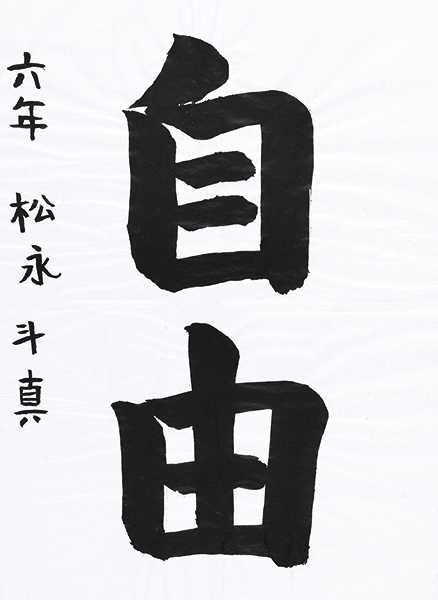 自由
六年 松永 斗真